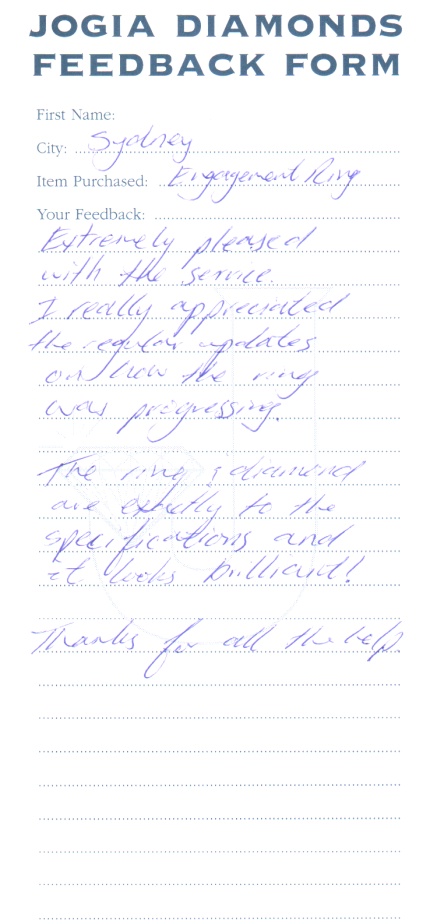 JOGIA DIAMONDS
FEEDBACK FORM
First Name:
City: Sydney
Item Purchased: Engagement Ring
Your Feedback:
Extremely pleased
with the service.
I really appreciated
the regular updates
on how the ring
was progressing.
The ring & diamond
are exactly to the
specifications and
it looks brilliant!
Thanks for all the help.